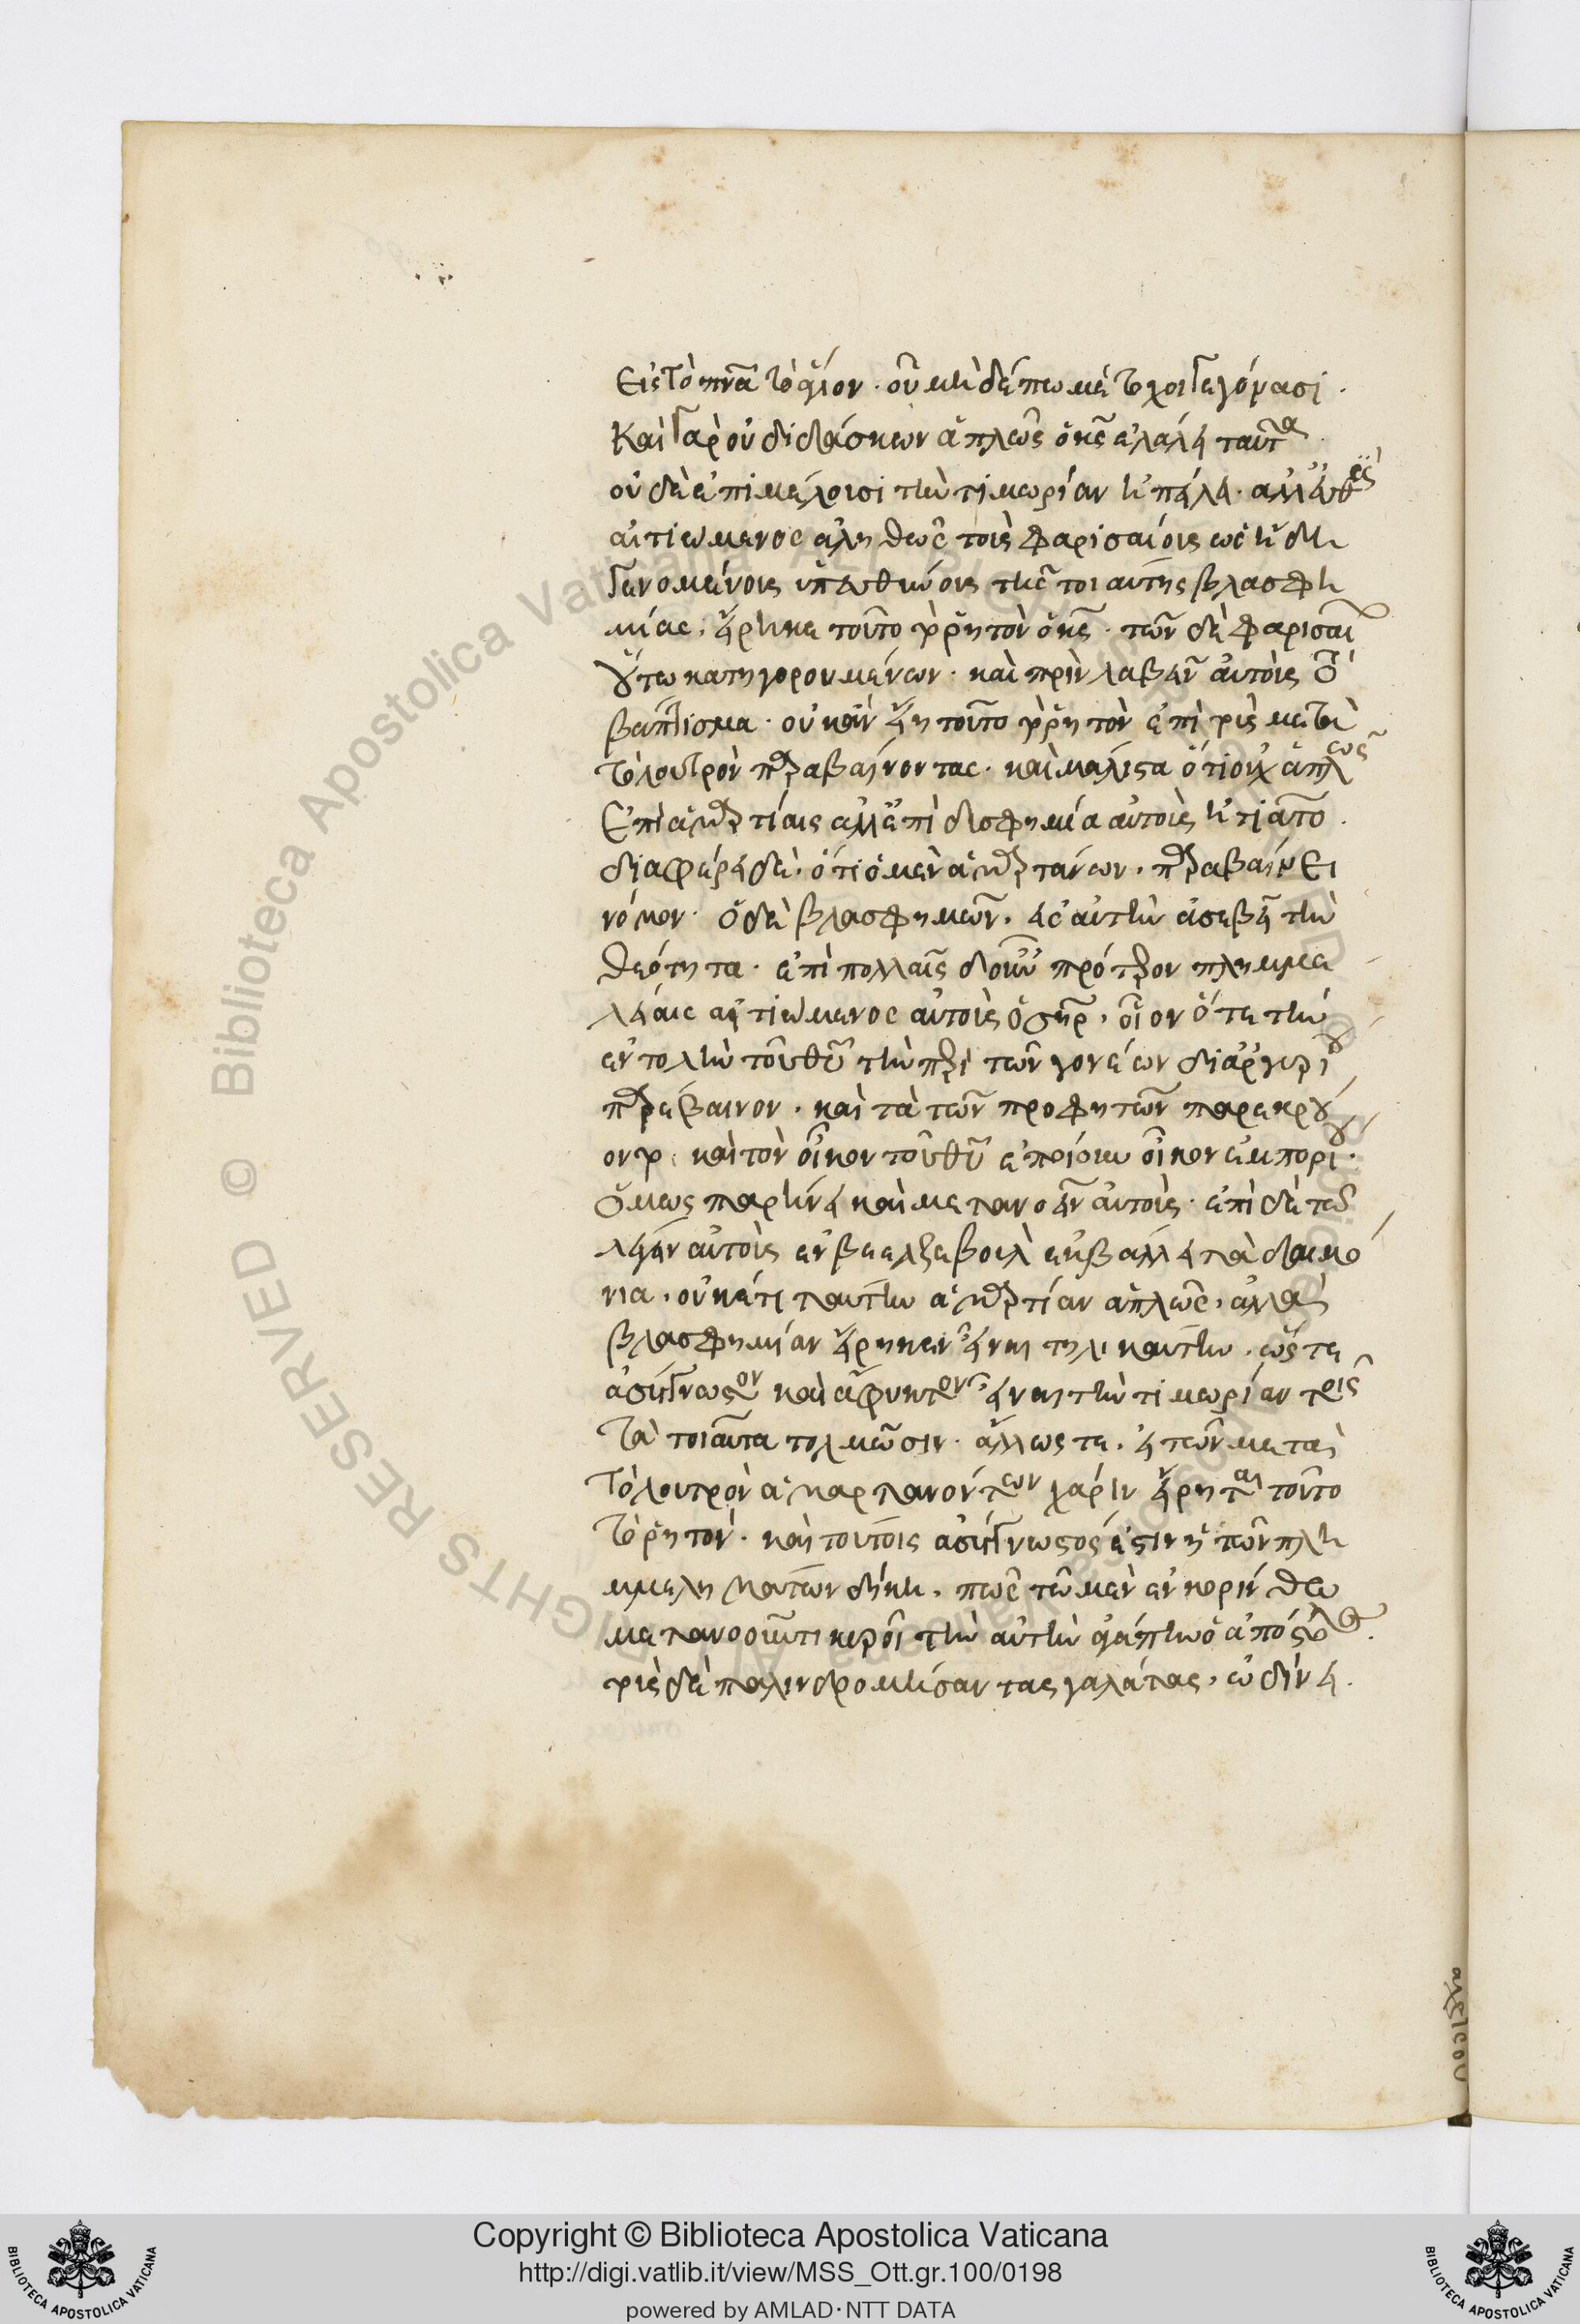 εἰς τὸ πνᾶ τὸ ἅγιον· οὗ μηδέπω μέτοχοι γεγόνασι·
Καὶ γὰρ οὐ διδάσκων ἁπλῶς ὁ κς ἐλάλει ταῦτα
οὐδὲ ἐπιμέλλουσι τὴν τιμωρίαν ἠπείλει· ἀλλ'
αἰτιώμενος ἀληθῶς τοὺς φαρισαίους ὡς ἤδη
γενομένους ὑπευθύνους τῆς τοιαύτης βλασφη
μίας, εἴρηκε τοῦτο τὸ ῥητὸν ὁ κς· τῶν δὲ φαρισαί
οὕτω κατηγορουμένων· καὶ πρὶν λαβεῖν αὐτοὺς τὸ
βάπτισμα· οὐκ ἂν εἴη τοῦτο τὸ ῥητὸν ἐπὶ τοὺς μετὰ
τὸ λουτρὸν παραβαίνοντας· καὶ μάλιστα ὅτι οὐχ ἁπλῶς
Ἐπὶ ἁμαρτίαις ἀλλ' ἐπὶ δυσφημία αὐτοὺς ἠτιᾶτο·
διαφέρει δὲ, ὅτι ὁ μὲν ἁμαρτάνων, παραβαίνει
νόμον· ὁ δὲ βλασφημῶν, εἰς αὐτὴν ἀσεβεῖ τὴν
θεότητα· ἐπὶ πολλαῖς δ' οὖν πρότερον πλημμε
λείαις αἰτιώμενος αὐτοὺς ὁ σηρ, οἷον ὅτε τὴν
ἐντολὴν τοῦ θυ τὴν περὶ τῶν γονέων δι' ἀργυρίου
παρέβαινον, καὶ τὰ τῶν προφητῶν παρεκρού
οντο, καὶ τὸν οἶκον τοῦ θυ ἐποίουν οἶκον ἐμπορίου·
ὅμως παρήνει καὶ μετανοεῖν αὐτοὺς· ἐπὶ δὲ τῶ
λέγειν αὐτοὺς ἐν βεελζεβοὺλ ἐκβάλλει τὰ δαιμό
νια, οὐκέτι ταύτην ἁμαρτίαν ἁπλῶς, ἀλλὰ
βλασφημίαν εἴρηκεν εἶναι τηλικαύτην, ὥστε
ἀσύγγνωστον καὶ ἄφυκτον εἶναι τὴν τιμωρίαν τοῖς
τὰ τοιαῦτα τολμῶσιν· ἄλλως τε, εἰ τῶν μετὰ
τὸ λουτρὸν ἁμαρτανόντων χάριν εἴρηται τοῦτο
τὸ ῥητὸν· καὶ τούτοις ἀσύγγνωστός ἐστιν ἡ τῶν πλη
μμελημάτων δίκη, πῶς τῶ μὲν ἐν κορίνθω
μετανοοῦντι κυροῖ τὴν αὐτὴν ἀγάπην ὁ ἀπόστολος·
τοὺς δὲ παλινδρομήσαντας γαλάτας, ὠδίνει·